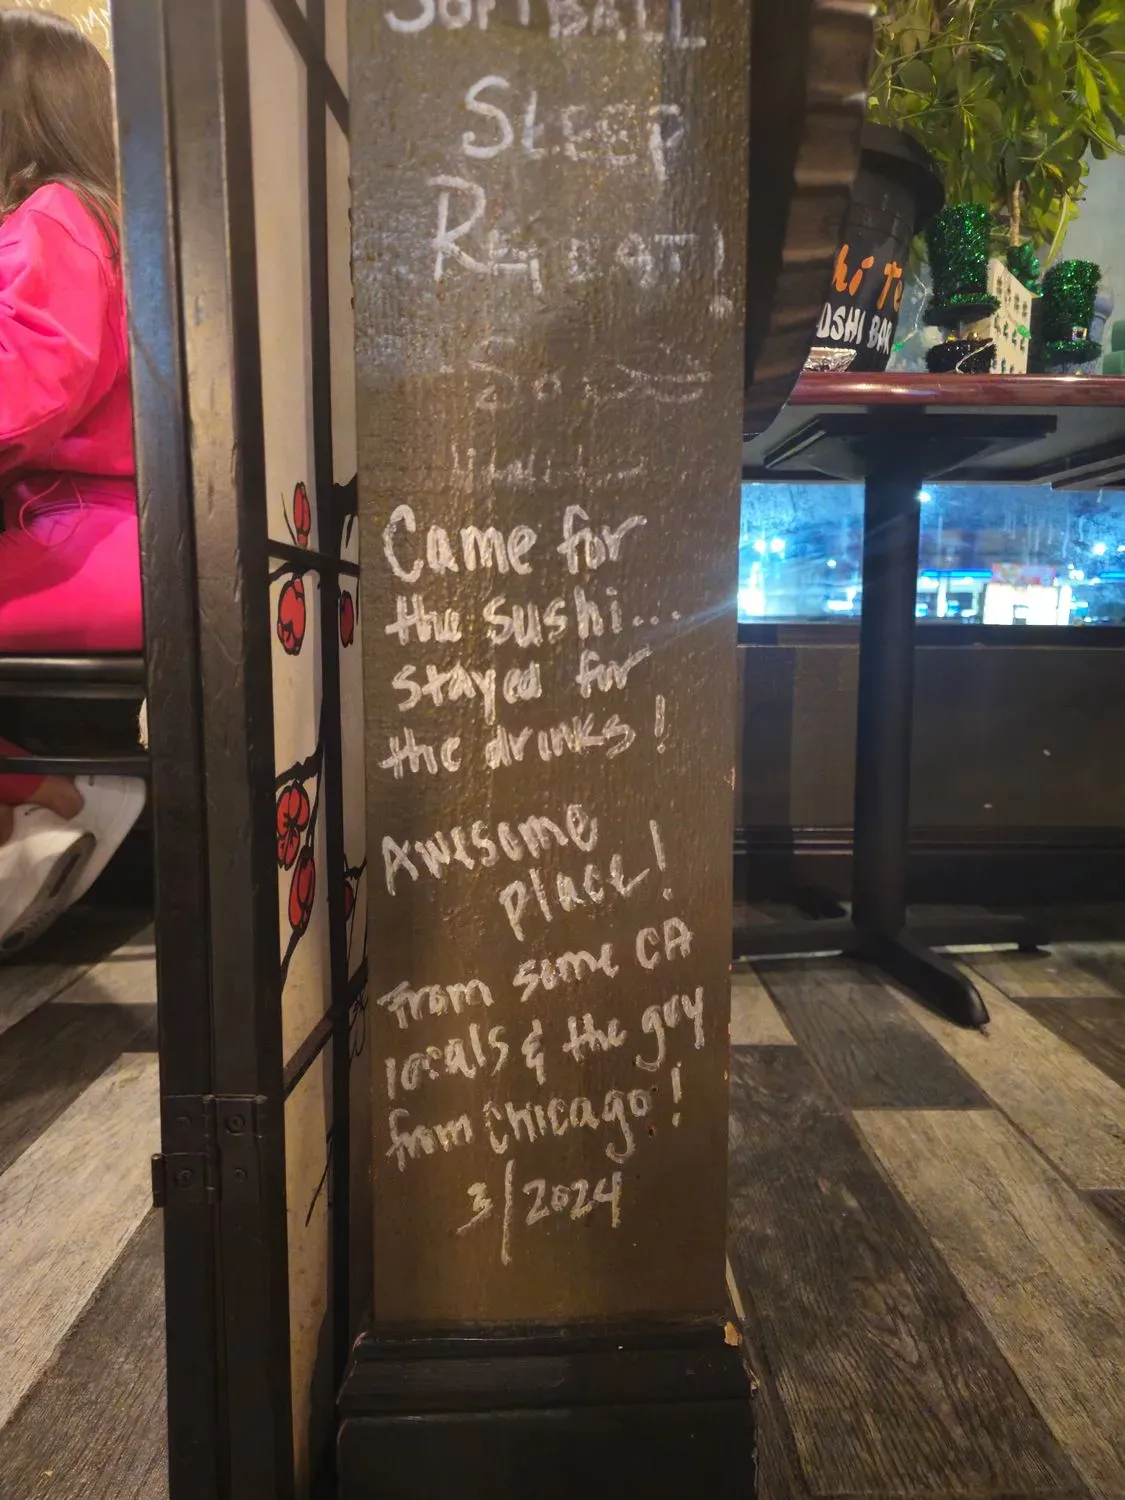 SOFTBALL
SLEEP
REPEAT!
Came for
the sushi...
stayed for
the drinks!
Awesome
place!
From some CA
locals & the guy
from Chicago!
3/2024
hi Te
OSHI BA